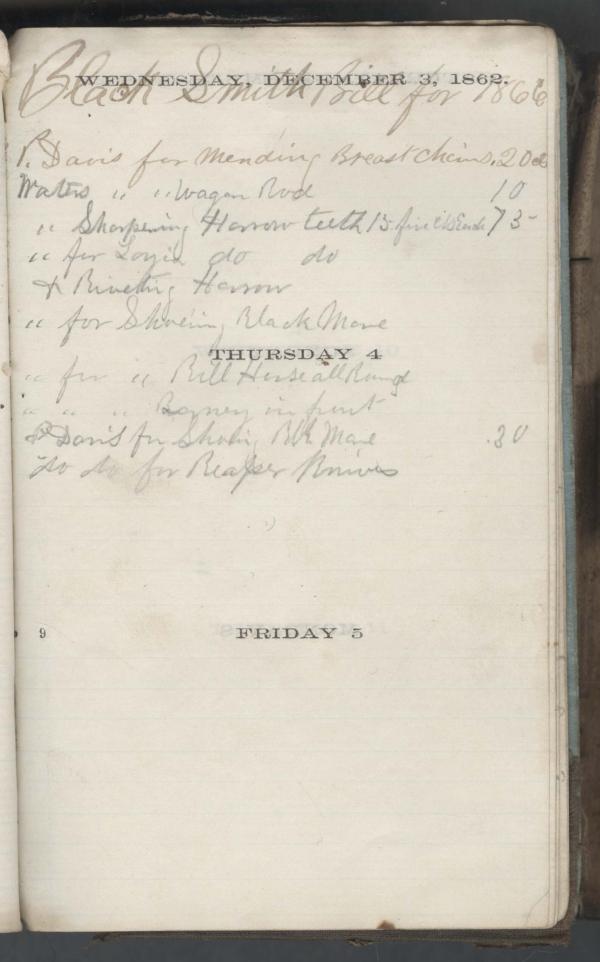 WEDNESDAY, DECEMBER 3, 1862.
Black Smith Bill for 1866
P. Davis for Mending Breast Chains .20
Waters " " Wagon Rod 10
" Sharpening Harrow teeth 15 five cts Each 75
" for do do
& Riveting Harrow
" for Shoeing Black Mare
THURSDAY 4
" for " Bill Horse all Round
" " " Barney in front
P Davis for Shoeing Blk Mare .30
do do for Reaper Knives
9 FRIDAY 5